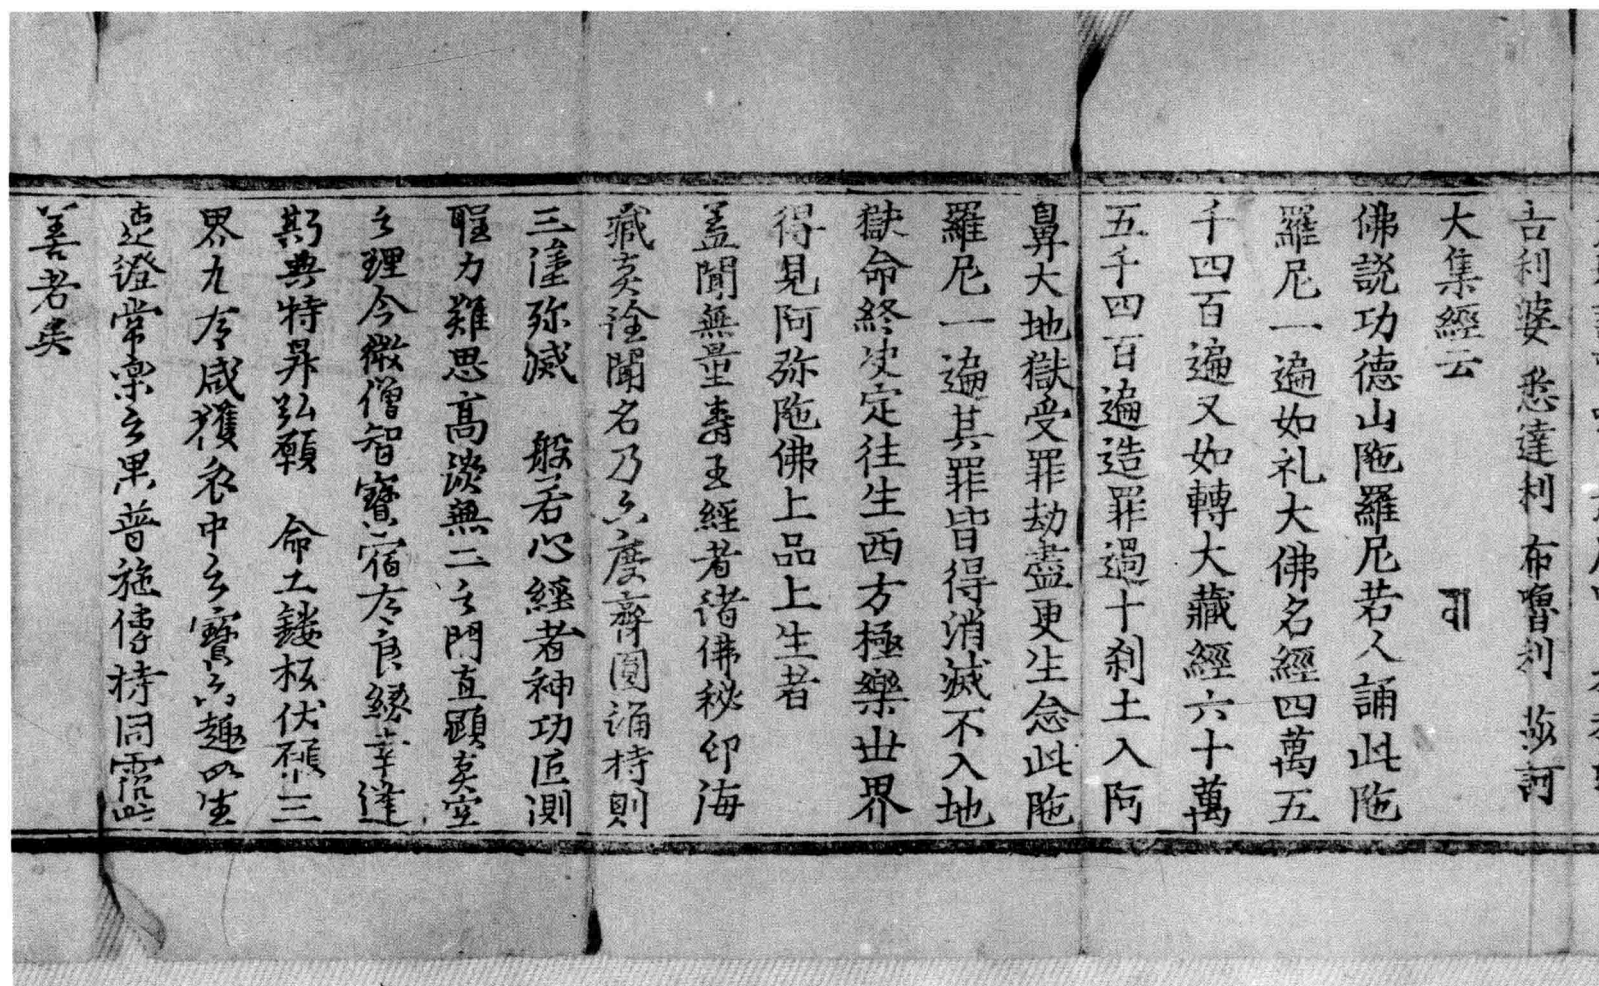 吉利婆 悉達利 布嚕利 莎訶
大集經云
佛說功德山陁羅尼若人誦此陁
羅尼一遍如礼大佛名經四萬五
千四百遍又如轉大藏經六十萬
五千四百遍造罪過十刹土入阿
鼻大地獄受罪劫盡更生念此陁
羅尼一遍其罪皆得消滅不入地
獄命終决定往生西方極樂世界
得見阿弥陁佛上品上生者
盖聞無量壽王經者諸佛秘印海
藏真詮聞名乃六度齊圓誦持則
三塗弥滅 般若心經者神功叵測
聖力難思高談無二之門直顯真空
之理今微僧智寶宿有良緣幸逢
斯典特昇弘願 命工鏤板伏願三
界九有咸獲衣中之寶六趣四生
速證常樂之果普施傳持同霑此
善者矣